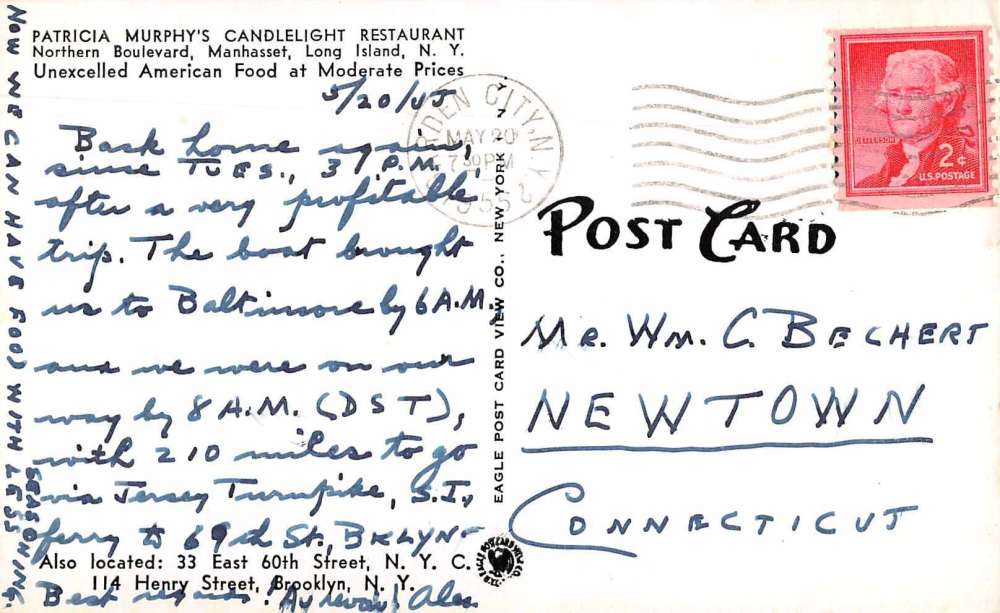 PATRICIA MURPHY'S CANDLELIGHT RESTAURANT
Northern Boulevard, Manhasset, Long Island, N. Y.
Unexcelled American Food at Moderate Prices
5/20/55
Back home again!
since TUES., 3 P.M.,
after a very profitable
trip. The boat brought
us to Baltimore by 6 A.M.,
and we were on our
way by 8 A.M. (DST),
with 210 miles to go
via Jersey Turnpike, S.I.,
ferry to 69th St., BKLYN.
Also located: 33 East 60th Street, N. Y. C.
114 Henry Street, Brooklyn, N. Y.
Best regards! Au revoir! Alex
NOW WE CAN HAVE FOOD WITH LESS
SEASONING.
EAGLE POST CARD VIEW CO., NEW YORK 1, N. Y.
GARDEN CITY, N.Y.
MAY 20
7 30 PM
1955
JEFFERSON
2¢
U.S. POSTAGE
POST CARD
MR. WM. C. BECHERT
NEWTOWN
CONNECTICUT